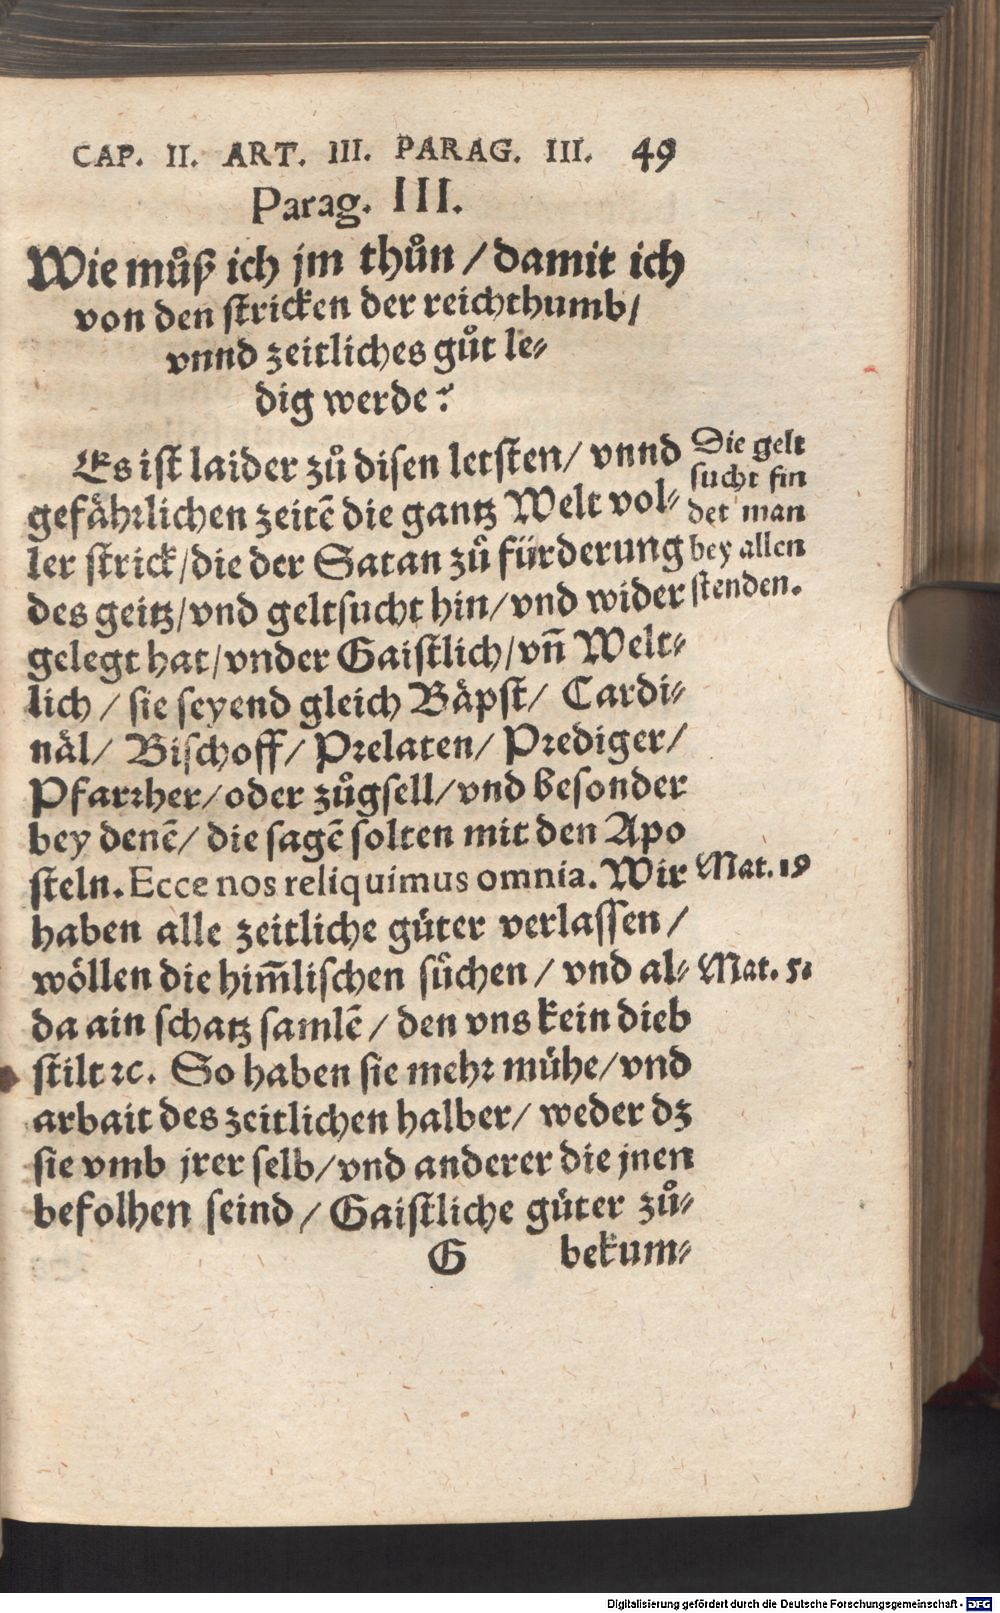 CAP. II. ART. III. PARAG. III. 49
Parag. III.
Wie můß ich jm thůn / damit ich
von den stricken der reichthumb /
vnnd zeitliches gůt le⸗
dig werde?
Es ist laider zů disen letsten / vnnd
gefährlichen zeitē die gantz Welt vol⸗
ler strick / die der Satan zů fürderung
des geitz / vnd geltsucht hin / vnd wider
gelegt hat / vnder Gaistlich / vn̄ Welt⸗
lich / sie seyend gleich Bäpst / Cardi⸗
näl / Bischoff / Prelaten / Prediger /
Pfarrher / oder zůgsell / vnd besonder
bey denē / die sagē solten mit den Apo
steln. Ecce nos reliquimus omnia. Wir
haben alle zeitliche güter verlassen /
wöllen die him̄lischen sůchen / vnd al⸗
da ain schatz samlē / den vns kein dieb
stilt ꝛc. So haben sie mehr mühe / vnd
arbait des zeitlichen halber / weder dz
sie vmb jrer selb / vnd anderer die jnen
befolhen seind / Gaistliche güter zů⸗
G bekum⸗
Die gelt
sucht fin
det man
bey allen
stenden.
Mat. 19
Mat. 5.
Digitalisierung gefördert durch die Deutsche Forschungsgemeinschaft - DFG